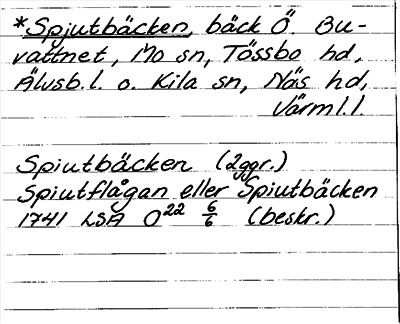 *Spjutbäcken, bäck Ö. Bu-
vattnet, Mo sn, Tössbo hd,
Älvsb.l. o. Kila sn, Näs hd,
Värml.l.
Spiutbäcken (2ggr.)
Spiutflågan eller Spiutbäcken
1741 LSA O²² 6/6 (beskr.)